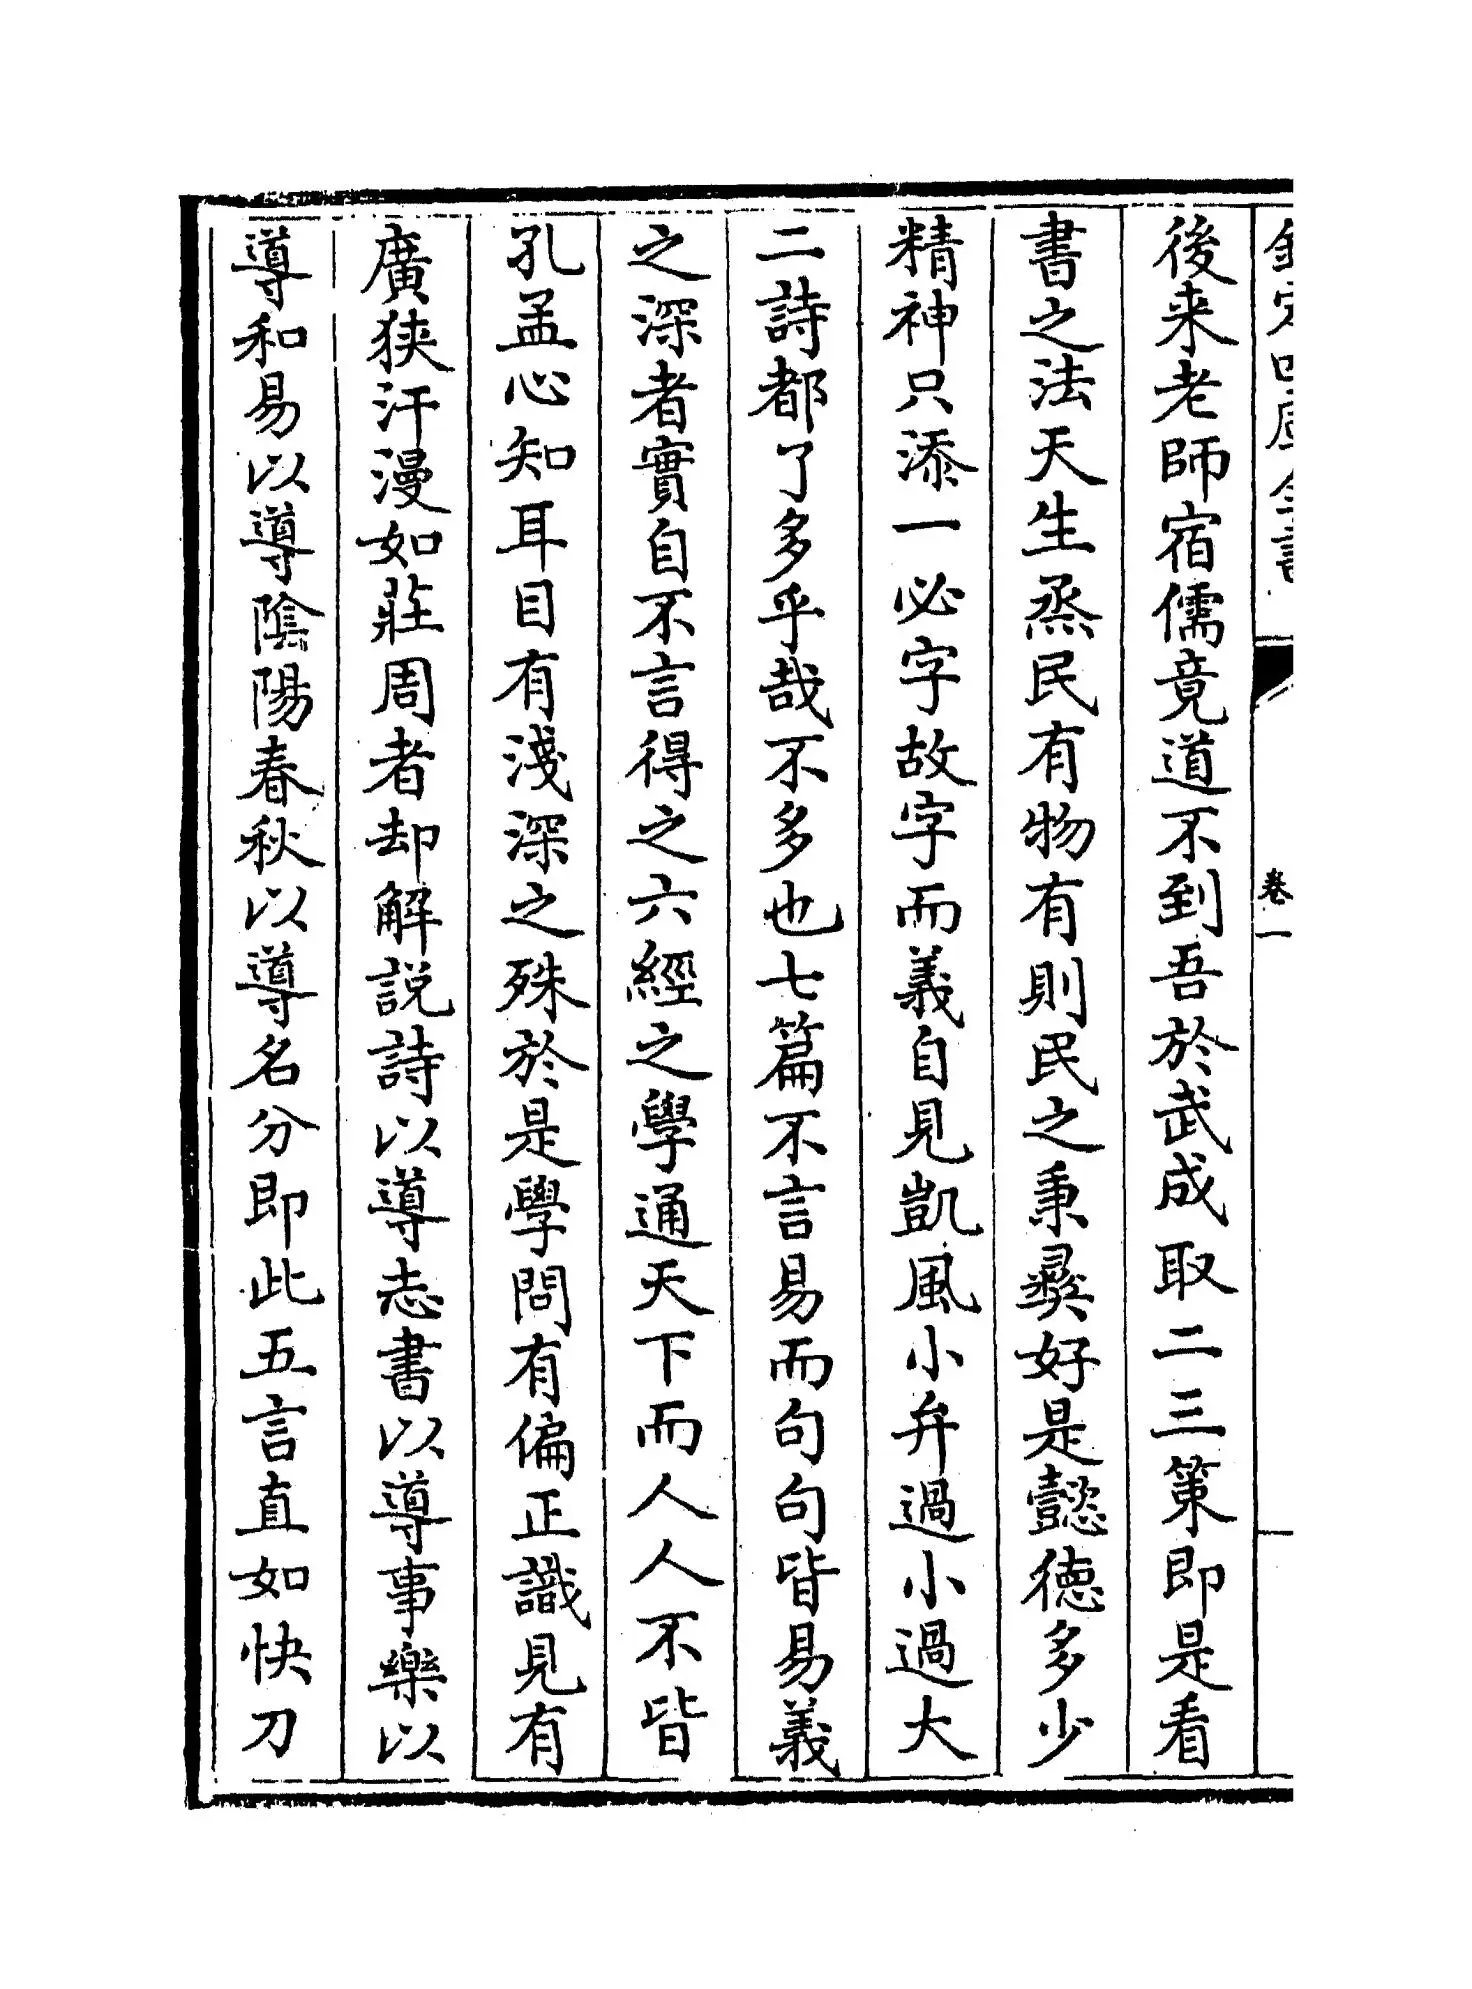 欽定四庫全書
卷一
後来老師宿儒竟道不到吾於武成取二三策即是看
書之法天生烝民有物有則民之秉彛好是懿徳多少
精神只添一必字故字而義自見凱風小弁過小過大
二詩都了多乎哉不多也七篇不言易而句句皆易義
之深者實自不言得之六經之學通天下而人人不皆
孔孟心知耳目有淺深之殊於是學問有偏正識見有
廣狭汗漫如莊周者却解説詩以導志書以導事樂以
導和易以導隂陽春秋以導名分即此五言直如快刀